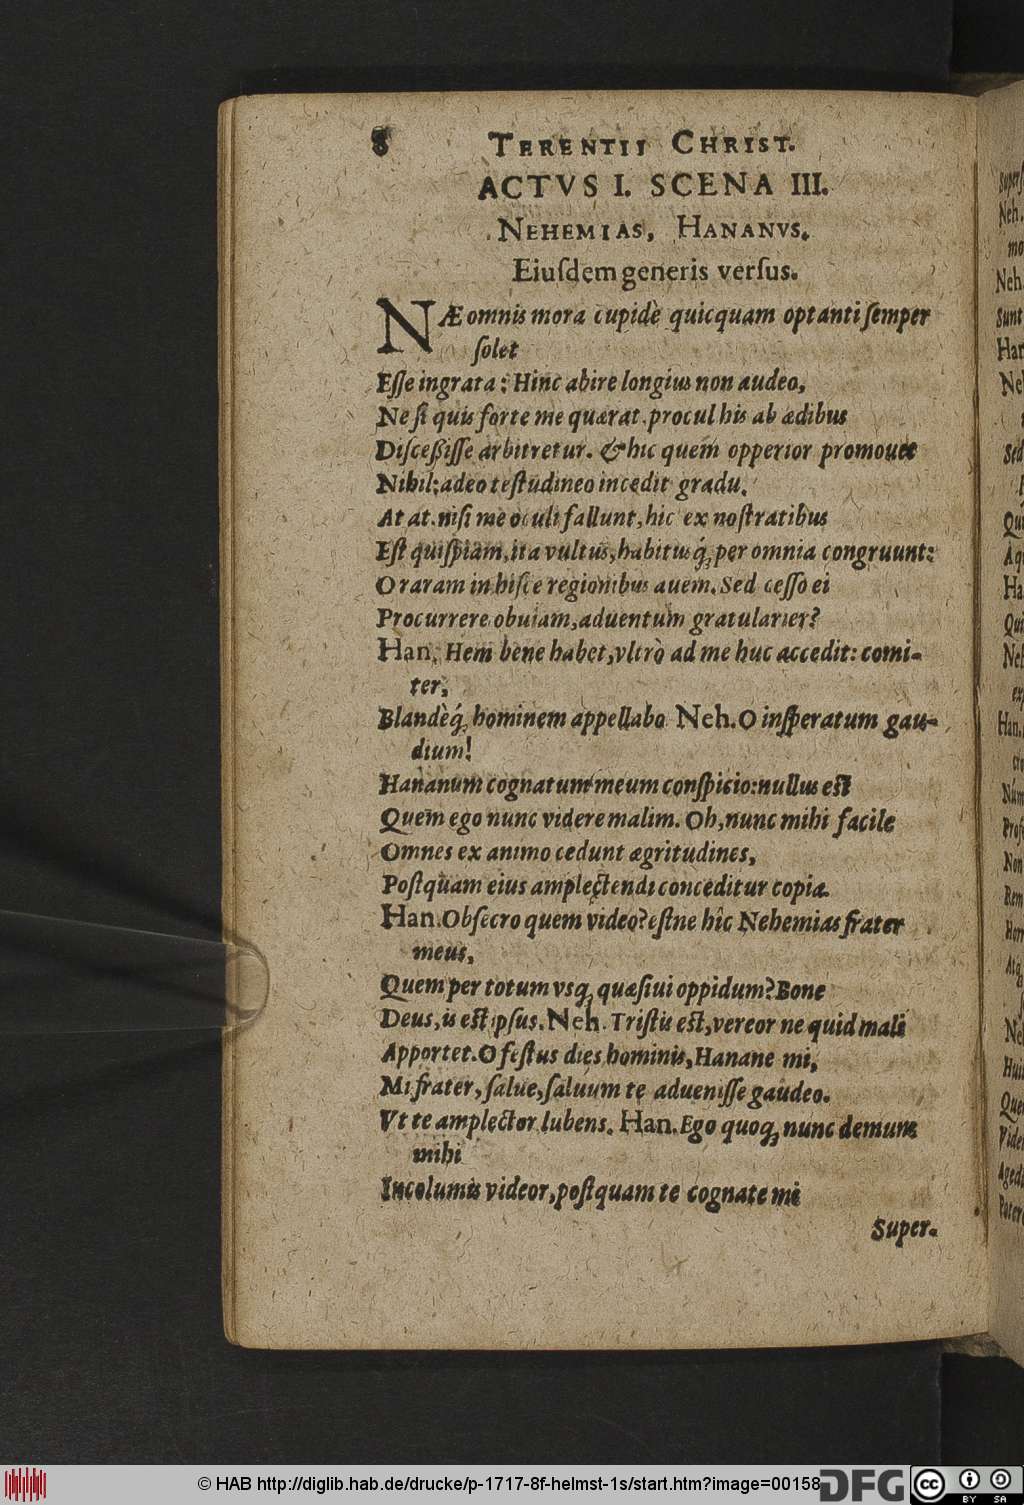 8 TERENTII CHRIST.
ACTVS I. SCENA III.
NEHEMIAS, HANANVS.
Eiuſdem generis verſus.
NÆ omnis mora cupidè quicquam optanti ſemper
ſolet
Eſſe ingrata: Hinc abire longius non audeo,
Ne ſi quis forte me quærat. procul his ab ædibus
Diſceßiſſe arbitretur. & hic quem opperior promouet
Nihil: adeo teſtudineo incedit gradu.
At at. niſi me oculi fallunt, hic ex noſtratibus
Eſt quiſpiam, ita vultus, habitusq́; per omnia congruunt:
O raram in hiſce regionibus auem. Sed ceſſo ei
Procurrere obuiam, aduentum gratularier?
Han. Hem bene habet, vltrò ad me huc accedit: comi-
ter,
Blandèq́; hominem appellabo Neh. O inſperatum gau-
dium!
Hananum cognatum meum conſpicio: nullus eſt
Quem ego nunc videre malim. Oh, nunc mihi facile
Omnes ex animo cedunt ægritudines,
Poſtquam eius amplectendi conceditur copia.
Han. Obſecro quem video? eſtne hîc Nehemias frater
meus,
Quem per totum vsq; quæſiui oppidum? Bone
Deus, is eſt ipſus. Neh. Triſtis eſt, vereor ne quid mali
Apportet. O feſtus dies hominis, Hanane mi,
Mi frater, ſalue, ſaluum te adueniſſe gaudeo.
Vt te amplector lubens. Han. Ego quoq; nunc demum
mihi
Incolumis videor, poſtquam te cognate mi
Super.
© HAB http://diglib.hab.de/drucke/p-1717-8f-helmst-1s/start.htm?image=00158
DFG
cc BY SA